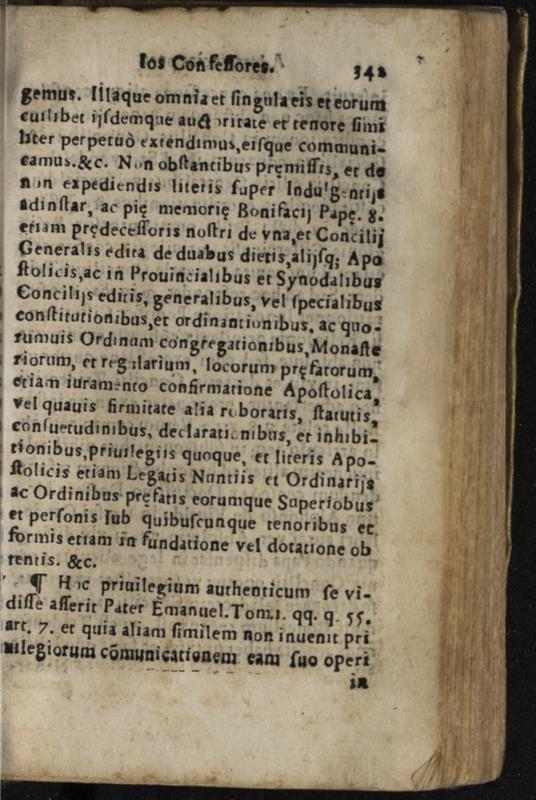 los Confessores. 342
gemus. Illaque omnia et singula eis et eorum
cuilibet ijsdemque auctoritate et tenore simi
liter perpetuò extendimus, eisque communi-
camus. &c. Non obstantibus pręmissis, et de
non expediendis literis super Indulgentijs
adinstar, ac pię memorię Bonifacij Papę. 8.
etiam prędecessoris nostri de vna, et Concilij
Generalis edita de duabus dietis, alijsq; Apo
stolicis, ac in Prouincialibus et Synodalibus
Concilijs editis, generalibus, vel specialibus
constitutionibus, et ordinantionibus, ac quo-
rumuis Ordinum congregationibus, Monaste
riorum, et regularium, locorum pręfatorum,
etiam iuramento confirmatione Apostolica,
vel quauis firmitate alia roboratis, statutis,
consuetudinibus, declarationibus, et inhibi-
tionibus, priuilegiis quoque, et literis Apo-
stolicis etiam Legatis Nuntiis et Ordinarijs
ac Ordinibus pręfatis eorumque Superiobus
et personis sub quibuscunque tenoribus et
formis etiam in fundatione vel dotatione ob
tentis. &c.
¶ Hoc priuilegium authenticum se vi-
disse asserit Pater Emanuel. Tom.1. qq. q. 55.
art. 7. et quia aliam similem non inuenit pri
uilegiorum cõmunicationem eam suo operi
in